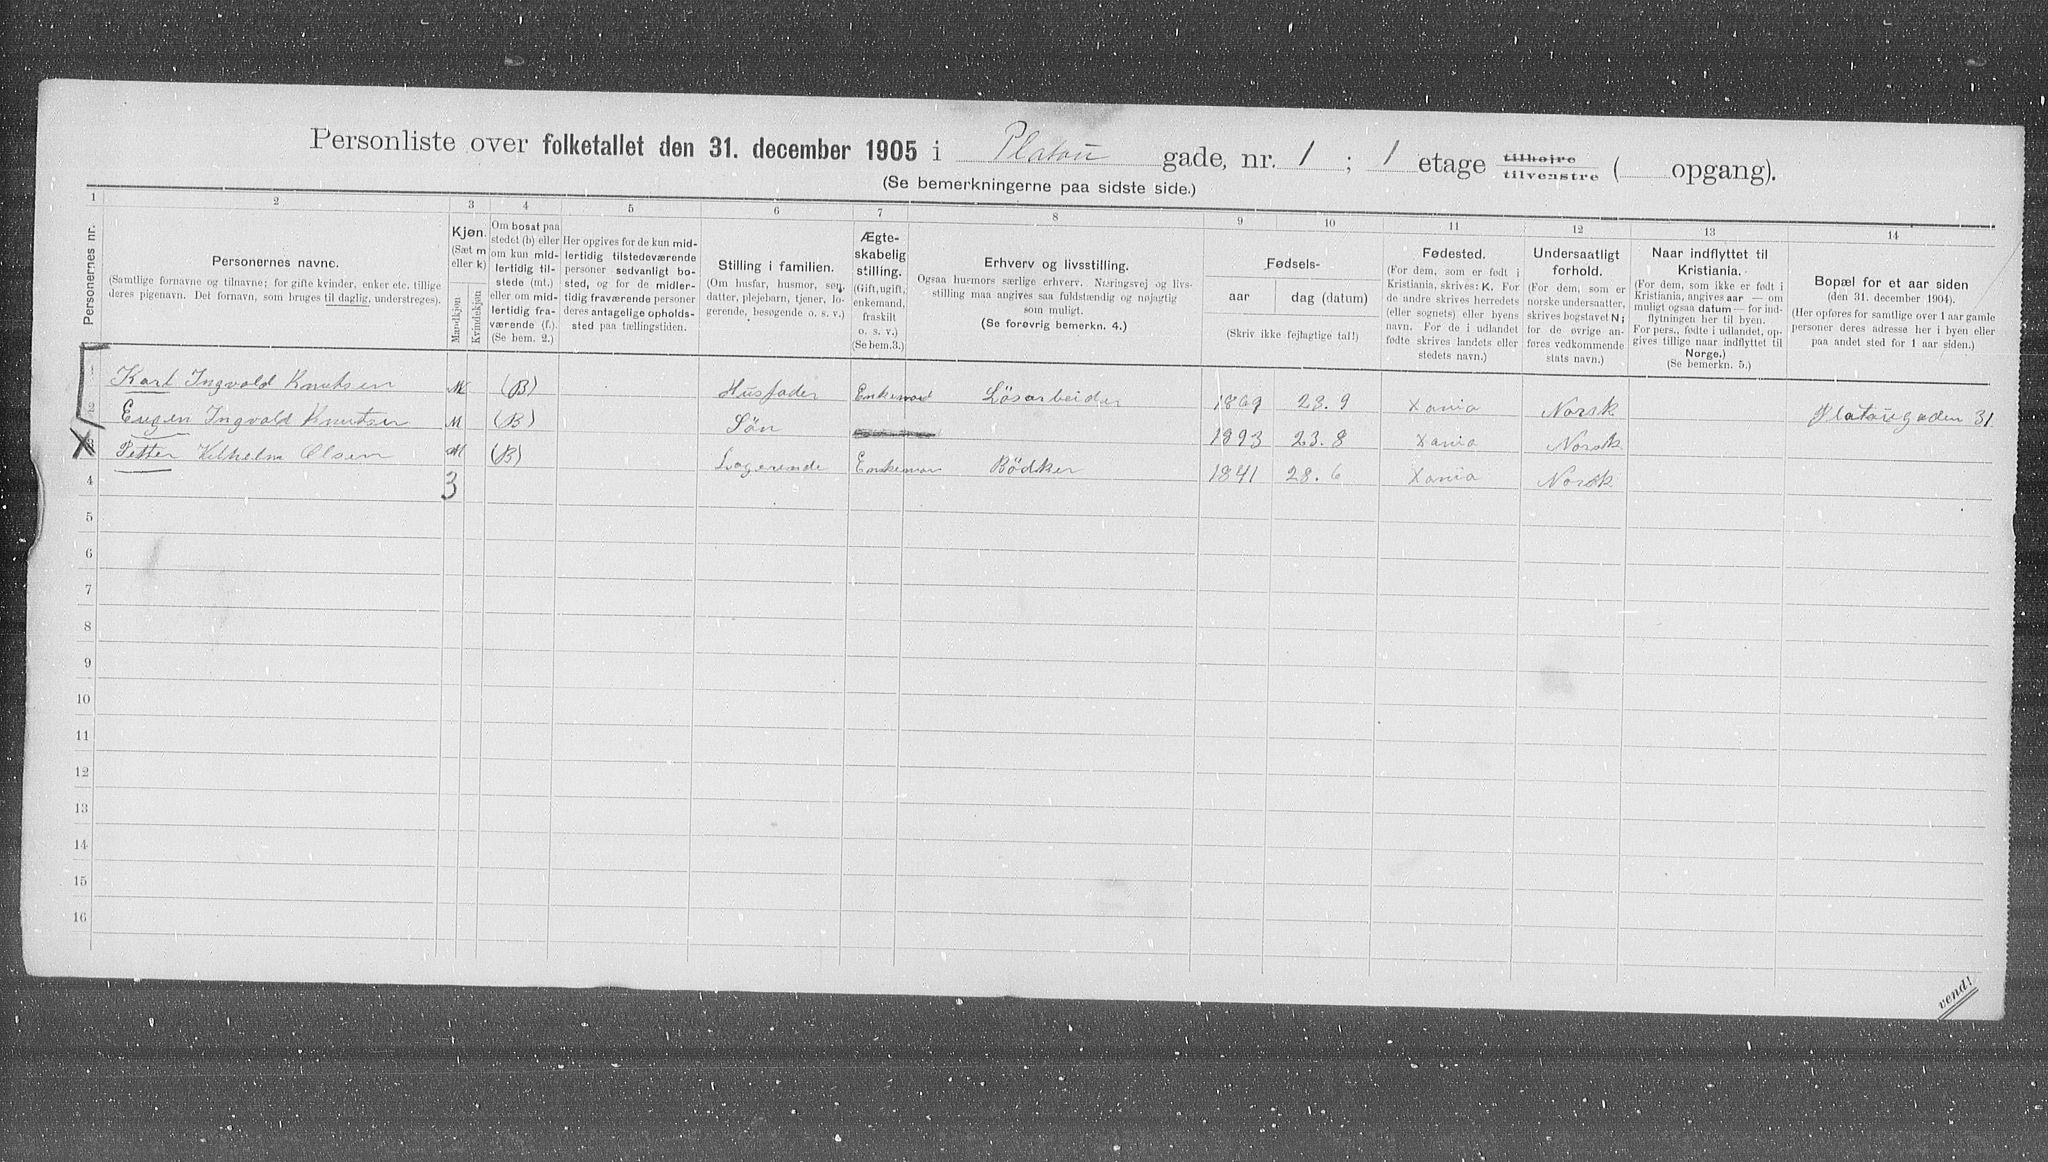 Personliste over folketallet den 31. december 1905 i Platou gade, nr. 1 ; 1 etage tilhøire tilvenstre ( opgang).
(Se bemerkningerne paa sidste side.)
1 2 3 4 5 6 7 8 9 10 11 12 13 14
Personernes nr.
Personernes navne.
(Samtlige fornavne og tilnavne; for gifte kvinder, enker etc. tillige
deres pigenavn. Det fornavn, som bruges til daglig, understreges).
Kjøn.
(Sæt m
eller k)
Mandkjøn
Kvindekjøn
Om bosat paa
stedet (b) eller
om kun mid-
lertidig til-
stede (mt.)
eller om mid-
lertidig fra-
værende (f.).
(Se bem. 2.)
Her opgives for de kun mid-
lertidig tilstedeværende
personer sedvanligt bo-
sted, og for de midler-
tidig fraværende personer
deres antagelige opholds-
sted paa tællingstiden.
Stilling i familien.
(Om husfar, husmor, søn,
datter, plejebarn, tjener, lo-
gerende, besøgende o. s. v.)
Ægte-
skabelig
stilling.
(Gift, ugift,
enkemand,
fraskilt
o. s. v.)
(Se bem. 3.)
Erhverv og livsstilling.
Ogsaa husmors særlige erhverv. Næringsvej og livs-
stilling maa angives saa fuldstændig og nøjagtig
som muligt.
(Se forøvrig bemerkn. 4.)
Fødsels-
aar dag (datum)
(Skriv ikke fejlagtige tal!)
Fødested.
(For dem, som er født i
Kristiania, skrives: K. For
de andre skrives herredets
(eller sognets) eller byens
navn. For de i udlandet
fødte skrives landets eller
stedets navn.)
Undersaatligt
forhold.
(For dem, som er
norske undersaatter,
skrives bogstavet N;
for de øvrige an-
føres vedkommende
stats navn.)
Naar indflyttet til
Kristiania.
(For dem, som ikke er født i
Kristiania, angives aar — om
muligt ogsaa datum — for ind-
flytningen her til byen.
For pers., fødte i udlandet, op-
gives tillige naar indflyttet til
Norge.)
(Se bemerkn. 5.)
Bopæl for et aar siden
(den 31. december 1904).
(Her opføres for samtlige over 1 aar gamle
personer deres adresse her i byen eller
paa andet sted for 1 aar siden.)
1 Karl Ingvald Knutsen M (B) Husfader Enkemand Løsarbeider 1869 23.9 Xania Norsk Platougaden 31
2 Eugen Ingvald Knutsen M (B) Søn 1893 23.8 Xania Norsk
3 Petter Vilhelm Olsen M (B) Logerende Enkeman Bödker 1841 28.6 Xania Norsk
4 3
5
6
7
8
9
10
11
12
13
14
15
16
vend!